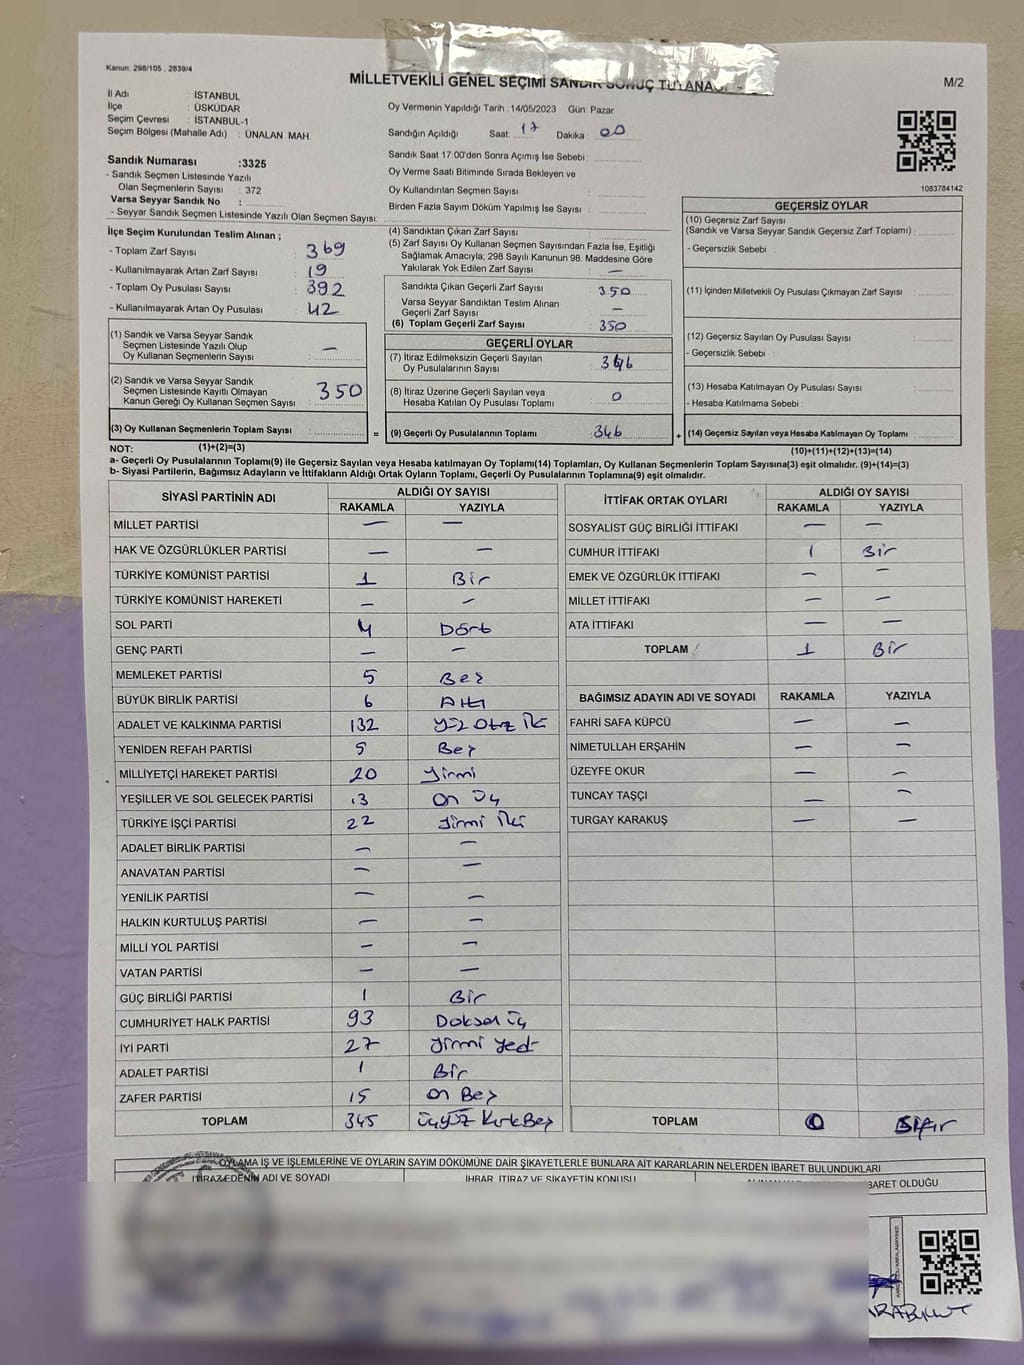 Kanun: 298/105 , 2839/4
MİLLETVEKİLİ GENEL SEÇİMİ SANDIK SONUÇ TUTANAĞI
M/2
İl Adı : İSTANBUL
İlçe : ÜSKÜDAR
Seçim Çevresi : İSTANBUL-1
Seçim Bölgesi (Mahalle Adı) : ÜNALAN MAH.
Sandık Numarası :3325
- Sandık Seçmen Listesinde Yazılı
Olan Seçmenlerin Sayısı : 372
Varsa Seyyar Sandık No :
- Seyyar Sandık Seçmen Listesinde Yazılı Olan Seçmen Sayısı:
Oy Vermenin Yapıldığı Tarih : 14/05/2023 Gün: Pazar
Sandığın Açıldığı Saat: 17 Dakika 00
Sandık Saat 17:00'den Sonra Açımış İse Sebebi :
Oy Verme Saati Bitiminde Sırada Bekleyen ve
Oy Kullandırılan Seçmen Sayısı :
Birden Fazla Sayım Döküm Yapılmış İse Sayısı :
1083784142
İlçe Seçim Kurulundan Teslim Alınan ;
- Toplam Zarf Sayısı : 369
- Kullanılmayarak Artan Zarf Sayısı : 19
- Toplam Oy Pusulası Sayısı : 392
- Kullanılmayarak Artan Oy Pusulası : 42
(1) Sandık ve Varsa Seyyar Sandık
Seçmen Listesinde Yazılı Olup
Oy Kullanan Seçmenlerin Sayısı : —
(2) Sandık ve Varsa Seyyar Sandık
Seçmen Listesinde Kayıtlı Olmayan
Kanun Gereği Oy Kullanan Seçmen Sayısı : 350
(3) Oy Kullanan Seçmenlerin Toplam Sayısı : =
(1)+(2)=(3)
(4) Sandıktan Çıkan Zarf Sayısı :
(5) Zarf Sayısı Oy Kullanan Seçmen Sayısından Fazla İse, Eşitliği
Sağlamak Amacıyla; 298 Sayılı Kanunun 98. Maddesine Göre
Yakılarak Yok Edilen Zarf Sayısı : —
Sandıkta Çıkan Geçerli Zarf Sayısı : 350
Varsa Seyyar Sandıktan Teslim Alınan
Geçerli Zarf Sayısı : —
(6) Toplam Geçerli Zarf Sayısı : 350
GEÇERLİ OYLAR
(7) İtiraz Edilmeksizin Geçerli Sayılan
Oy Pusulalarının Sayısı : 346
(8) İtiraz Üzerine Geçerli Sayılan veya
Hesaba Katılan Oy Pusulası Toplamı : 0
(9) Geçerli Oy Pusulalarının Toplamı : 346 +
GEÇERSİZ OYLAR
(10) Geçersiz Zarf Sayısı
(Sandık ve Varsa Seyyar Sandık Geçersiz Zarf Toplamı) :
- Geçersizlik Sebebi :
(11) İçinden Milletvekili Oy Pusulası Çıkmayan Zarf Sayısı :
(12) Geçersiz Sayılan Oy Pusulası Sayısı :
- Geçersizlik Sebebi :
(13) Hesaba Katılmayan Oy Pusulası Sayısı :
- Hesaba Katılmama Sebebi :
(14) Geçersiz Sayılan veya Hesaba Katılmayan Oy Toplamı :
(10)+(11)+(12)+(13)=(14)
NOT:
a- Geçerli Oy Pusulalarının Toplamı(9) ile Geçersiz Sayılan veya Hesaba katılmayan Oy Toplamı(14) Toplamları, Oy Kullanan Seçmenlerin Toplam Sayısına(3) eşit olmalıdır. (9)+(14)=(3)
b- Siyasi Partilerin, Bağımsız Adayların ve İttifakların Aldığı Ortak Oyların Toplamı, Geçerli Oy Pusulalarının Toplamına(9) eşit olmalıdır.
SİYASİ PARTİNİN ADI ALDIĞI OY SAYISI
RAKAMLA YAZIYLA
MİLLET PARTİSİ — —
HAK VE ÖZGÜRLÜKLER PARTİSİ — —
TÜRKİYE KOMÜNİST PARTİSİ 1 Bir
TÜRKİYE KOMÜNİST HAREKETİ — —
SOL PARTİ 4 Dört
GENÇ PARTİ — —
MEMLEKET PARTİSİ 5 Beş
BÜYÜK BİRLİK PARTİSİ 6 Altı
ADALET VE KALKINMA PARTİSİ 132 Yüz Otuz İki
YENİDEN REFAH PARTİSİ 5 Beş
MİLLİYETÇİ HAREKET PARTİSİ 20 Yirmi
YEŞİLLER VE SOL GELECEK PARTİSİ 13 On Üç
TÜRKİYE İŞÇİ PARTİSİ 22 Yirmi İki
ADALET BİRLİK PARTİSİ — —
ANAVATAN PARTİSİ — —
YENİLİK PARTİSİ — —
HALKIN KURTULUŞ PARTİSİ — —
MİLLİ YOL PARTİSİ — —
VATAN PARTİSİ — —
GÜÇ BİRLİĞİ PARTİSİ 1 Bir
CUMHURİYET HALK PARTİSİ 93 Doksan Üç
İYİ PARTİ 27 Yirmi Yedi
ADALET PARTİSİ 1 Bir
ZAFER PARTİSİ 15 On Beş
TOPLAM 345 Üçyüz Kırk Beş
İTTİFAK ORTAK OYLARI ALDIĞI OY SAYISI
RAKAMLA YAZIYLA
SOSYALİST GÜÇ BİRLİĞİ İTTİFAKI — —
CUMHUR İTTİFAKI 1 Bir
EMEK VE ÖZGÜRLÜK İTTİFAKI — —
MİLLET İTTİFAKI — —
ATA İTTİFAKI — —
TOPLAM 1 Bir
BAĞIMSIZ ADAYIN ADI VE SOYADI RAKAMLA YAZIYLA
FAHRİ SAFA KÜPCÜ — —
NİMETULLAH ERŞAHİN — —
ÜZEYFE OKUR — —
TUNCAY TAŞÇI — —
TURGAY KARAKUŞ — —
TOPLAM 0 Sıfır
OYLAMA İŞ VE İŞLEMLERİNE VE OYLARIN SAYIM DÖKÜMÜNE DAİR ŞİKAYETLERLE BUNLARA AİT KARARLARIN NELERDEN İBARET BULUNDUKLARI
İTİRAZ EDENİN ADI VE SOYADI İHBAR, İTİRAZ VE ŞİKAYETİN KONUSU İBARET OLDUĞU